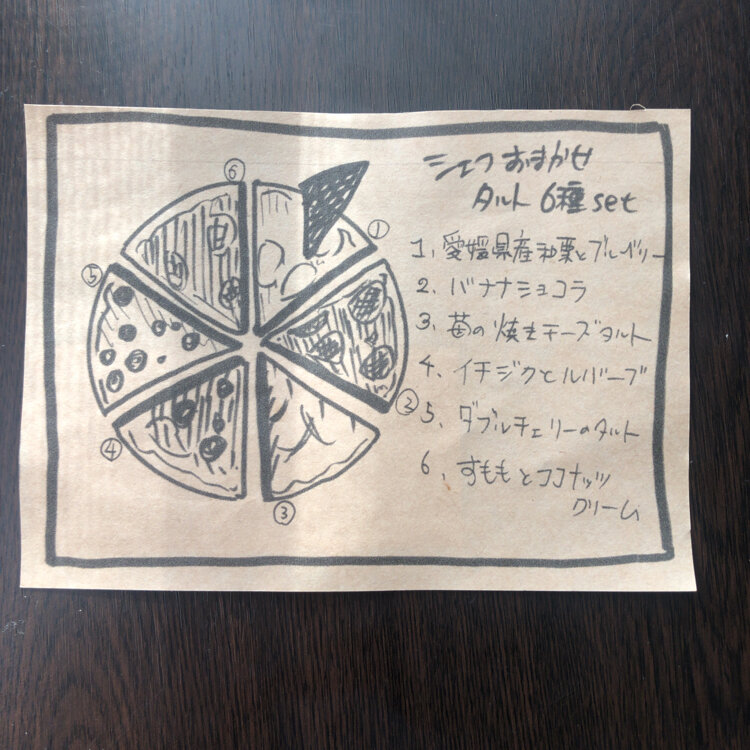 シェフおまかせ
タルト 6種set
1、愛媛県産和栗とブルーベリー
2、バナナショコラ
3、苺の焼きチーズタルト
4、イチジクとルバーブ
5、ダブルチェリーのタルト
6、すももとココナッツ
クリーム
⑥
①
⑤
②
④
③